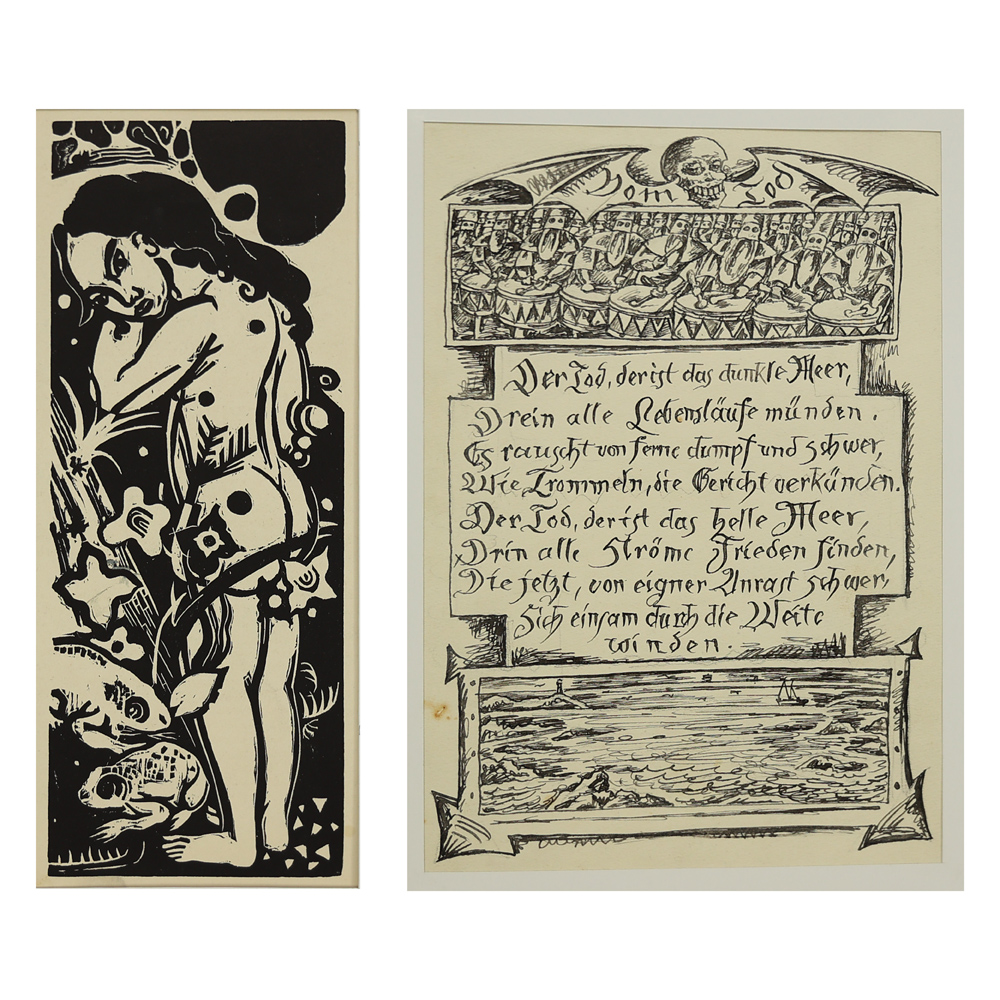 Vom Tod
Der Tod, der ist das dunkle Meer,
Drein alle Lebensläufe münden.
Es rauscht von ferne dumpf und schwer,
Wie Trommeln, die Gericht verkünden.
Der Tod, der ist das helle Meer,
Drin alle Ströme Frieden finden,
Die jetzt, von eigner Unrast schwer,
Sich einsam durch die Weite
winden.